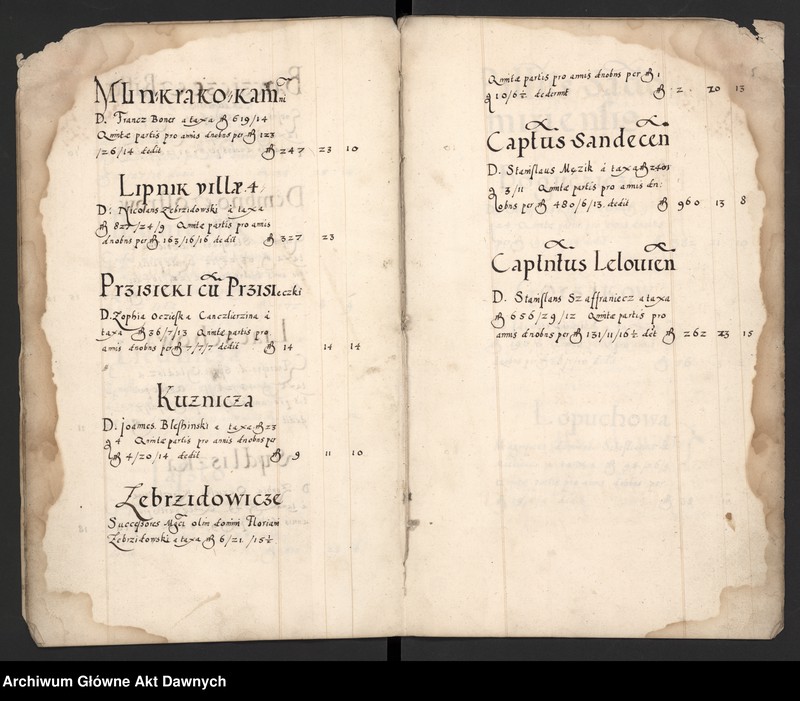 Mlin Krako Kam̃ni
D. Francz Boner a taxa 619/14
Qnntæ partis pro annis dnobns per 123
/26/14 dedit 247 23 10
Lipnik villæ 4
D: Nicolans Zebrzidowski a taxa
827/24/9 Qnntæ partis pro annis
dnobns per 163/16/16 dedit 327 23
Przisieki cũ Przisieczki
D. Zophia Oczieska Canczlierzina a
taxa 36/7/13 Qnntæ partis pro
annis dnobns per 7/7/7 dedit 14 14 14
Kuznicza
D. joannes Bleshinski a taxa 23
g 4 Qnntæ partis pro annis dnobns per
4/20/14 dedit 9 11 10
Zebrzidowicze
Successores Mgci olim domini Floriani
Zebrzidowski a taxa 6/21/15½
Qnntæ partis pro annis dnobns per 1
g 10/6½ dedernnt 2 20 13
Captus Sandecen
D. Stanislaus Mężik a taxa 2401
g 3/11 Qnntæ partis pro annis dn:
obns per 480/6/13 dedit 960 13 8
Captntus Lelouien
D. Stanislans Szaffraniecz a taxa
656/29/12 Qnntæ partis pro
annis dnobns per 131/11/16½ det 262 23 15
Archiwum Główne Akt Dawnych